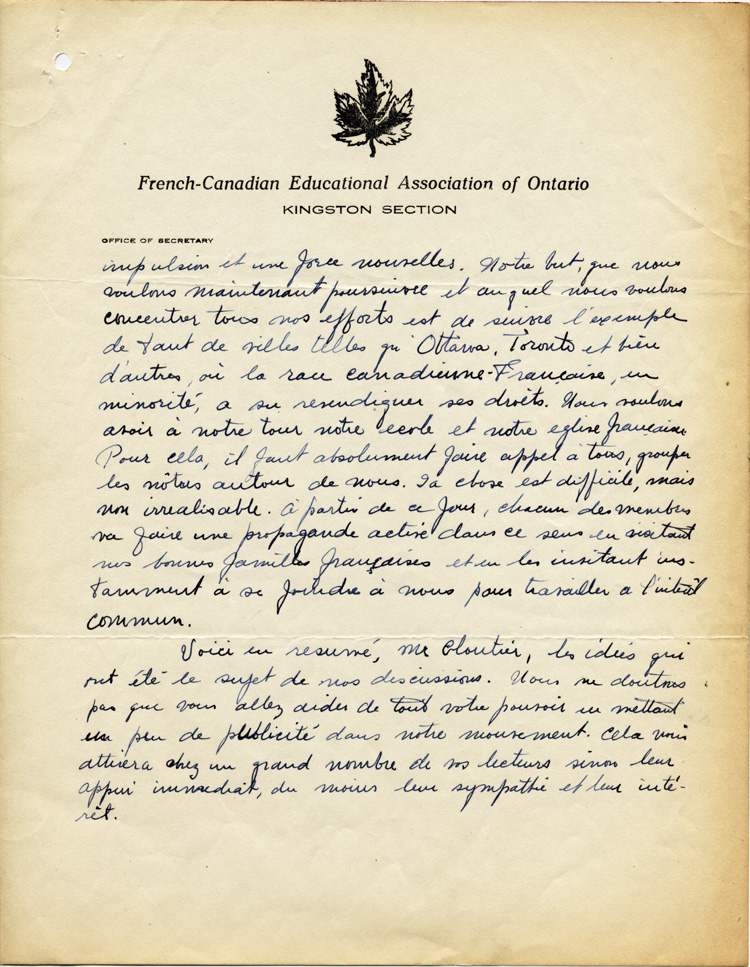 French-Canadian Educational Association of Ontario
KINGSTON SECTION
OFFICE OF SECRETARY
impulsion et une force nouvelles. Notre but, que nous
voulons maintenant poursuivre et auquel nous voulons
concentrer tous nos efforts est de suivre l'exemple
de tant de villes telles qu'Ottawa, Toronto et bien
d'autres, où la race canadienne-Française, en
minorité, a su revendiquer ses droits. Nous voulons
avoir à notre tour notre ecole et notre eglise française.
Pour cela, il faut absolument faire appel à tous, grouper
les nôtres autour de nous. La chose est difficile, mais
non irrealisable. A partir de ce jour, chacun des membres
va faire une propagande active dans ce sens en visitant
nos bonnes familles françaises et en les invitant ins-
tamment à se joindre à nous pour travailler a l'intérêt
commun.
Voici en resumé, Mr Cloutier, les idées qui
ont été le sujet de nos discussions. Nous ne doutons
pas que vous allez aider de tout votre pouvoir en mettant
un peu de publicité dans notre mouvement. Cela vous
attirera chez un grand nombre de vos lecteurs sinon leur
appui immediat, du moins leur sympathie et leur inté-
rêt.